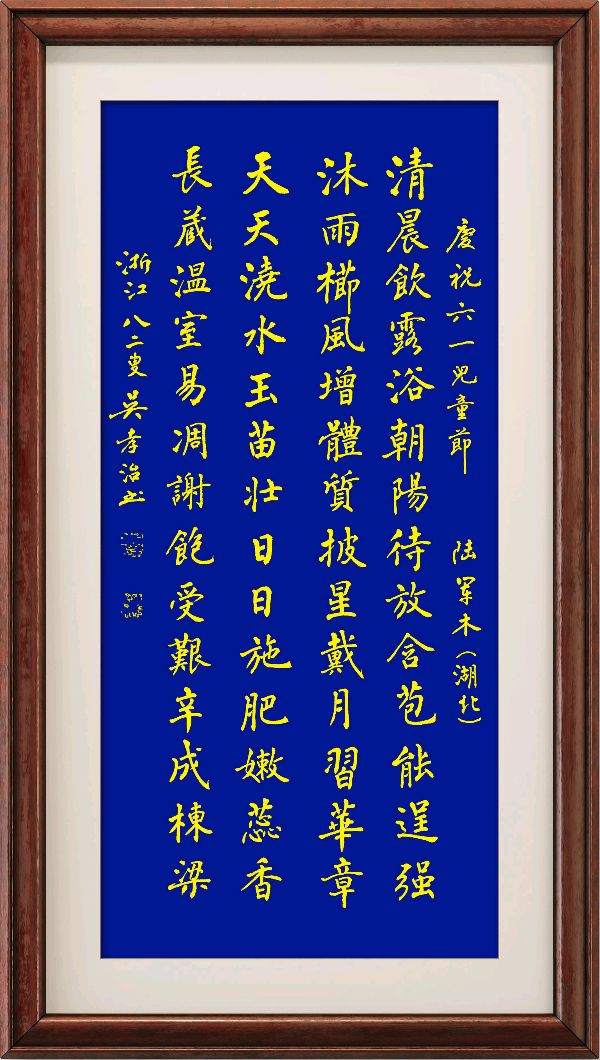 慶祝六一兒童節 陆军木（湖北）
清晨飲露浴朝陽待放含苞能逞强
沐雨櫛風增體質披星戴月習華章
天天澆水玉苗壮日日施肥嫩蕊香
長蔵溫室易凋謝飽受艱辛成棟梁
浙江八二叟吳孝治书